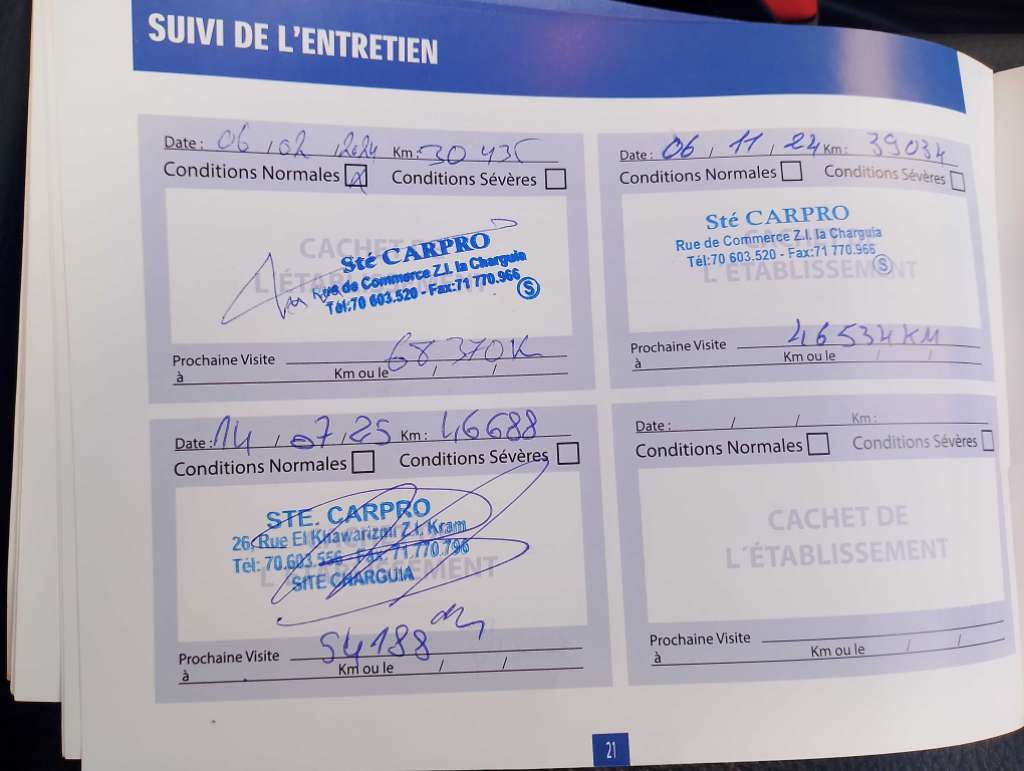 SUIVI DE L'ENTRETIEN
Date : 06 / 02 / 2024 Km : 30 435
Conditions Normales Conditions Sévères
CACHET DE
L'ÉTABLISSEMENT
Sté CARPRO
Rue de Commerce Z.I. la Charguia
Tél:70 603.520 - Fax:71 770.966
S
Prochaine Visite 68 370K
à Km ou le / /
Date : 06 / 11 / 24 Km : 39034
Conditions Normales Conditions Sévères
CACHET DE
L'ÉTABLISSEMENT
Sté CARPRO
Rue de Commerce Z.I. la Charguia
Tél:70 603.520 - Fax:71 770.966
S
Prochaine Visite 46534KM
à Km ou le / /
Date : 14 / 07 / 25 Km : 46688
Conditions Normales Conditions Sévères
L'ÉTABLISSEMENT
STE. CARPRO
26, Rue El Khawarizmi Z.I. Kram
Tél: 70.603.556 - Fax: 71.770.796
SITE CHARGUIA
Prochaine Visite 54188
à Km ou le / /
Date : / / Km :
Conditions Normales Conditions Sévères
CACHET DE
L´ÉTABLISSEMENT
Prochaine Visite
à Km ou le / /
21